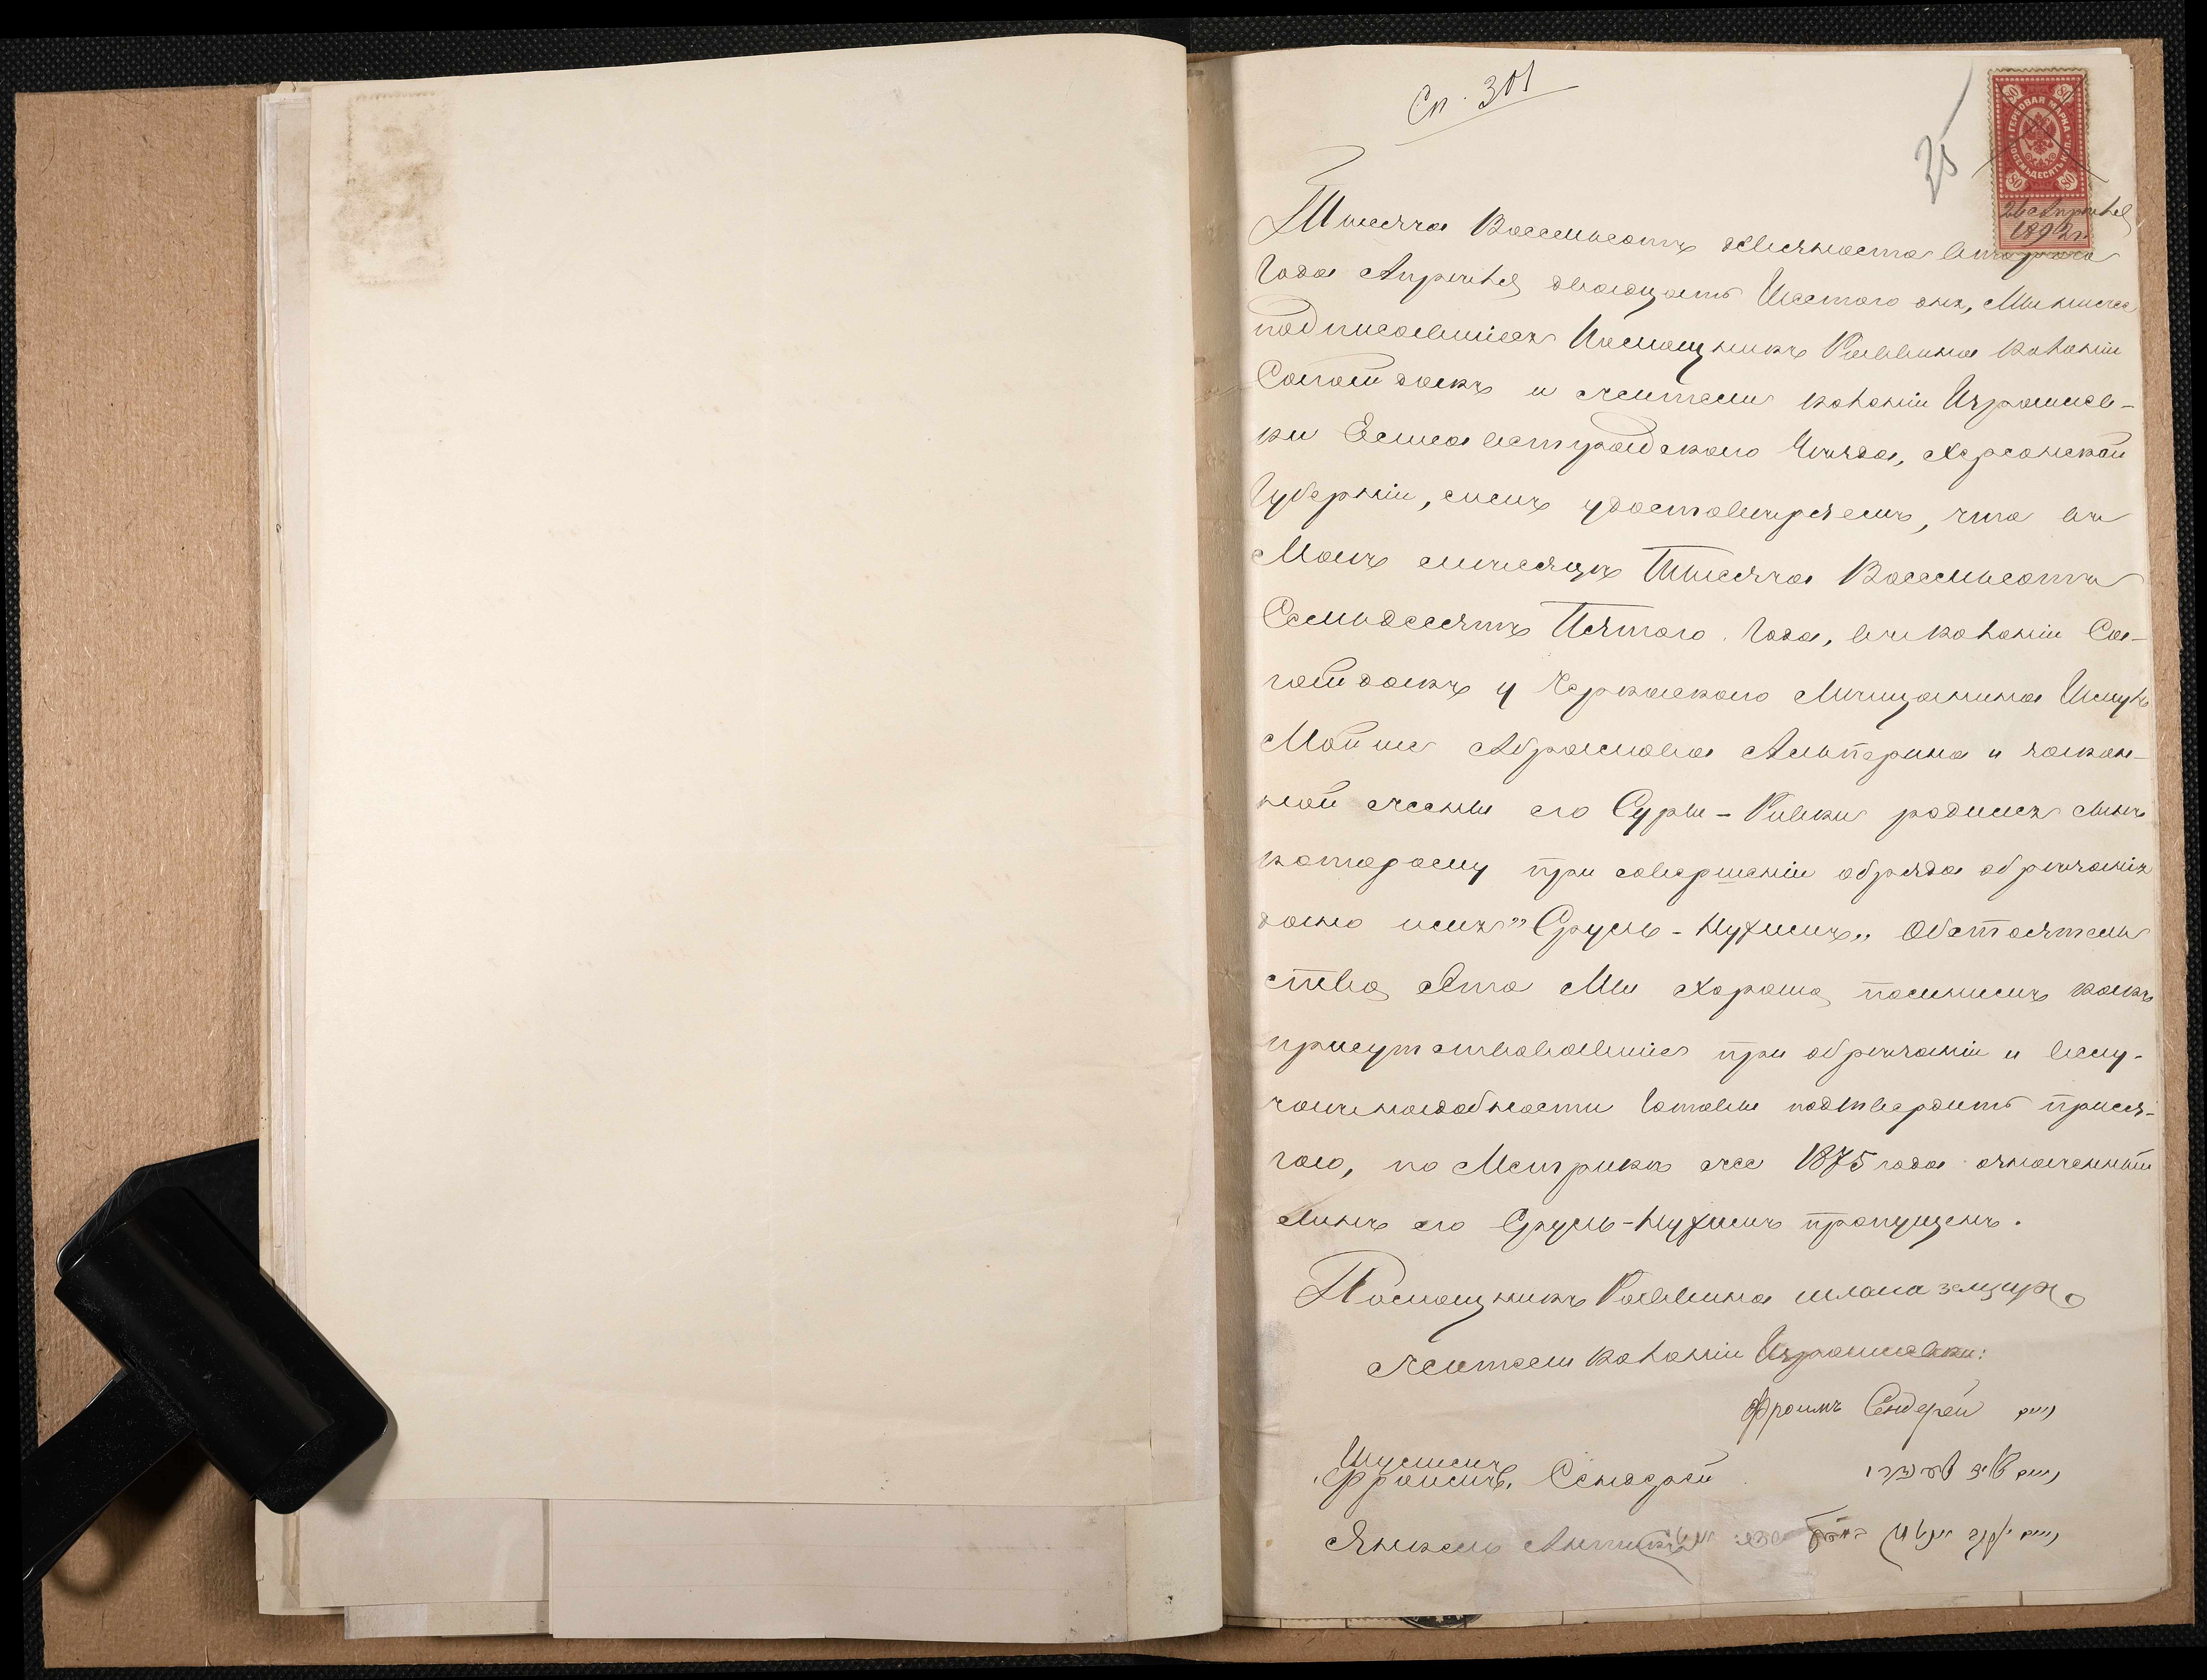 Ст. 301
25
ГЕРБОВАЯ МАРКА
ВОСЕМЬДЕСЯТЪ КОП.
80 80
80 80
26 Апрѣля
1892 г.
Тысяча Восемьсотъ девяноста втораго
Года Апрѣля двадцать Шестого дня, Мы нижее
подписавшіеся Помощникъ Раввина колоніи
Сагайдакъ и жители колоніи Израилев-
ки Елисаветградскаго Уѣзда, Херсонской
Губерніи, симъ удостовѣряемъ, что въ
Маѣ мѣсяцѣ Тысяча Восемьсотъ
Семьдесятъ Пятого Года, въ колоніи Са-
гайдакъ у Черкаского Мѣщанина Шмуль
Мойше Абрамова Альперина и закон-
ной жены его Суры-Ривки родился сынъ
которому при совершеніи обряда обрѣзанія
дано имя "Сруль-Нухимъ" Обстоятель
ство Это Мы Хорошо помнимъ какъ
присутствовавшіе при обрѣзаніи и вслу-
чаѣ надобности Готовы подтвердить прися-
гою, по Метрикѣ же 1875 года означенный
сынъ его Сруль-Нухимъ пропущенъ.
Помощникъ Раввина
Жители колоніи Израилевки:
Фроимъ Сендерей
Фроимъ. Сендерей
Янкель